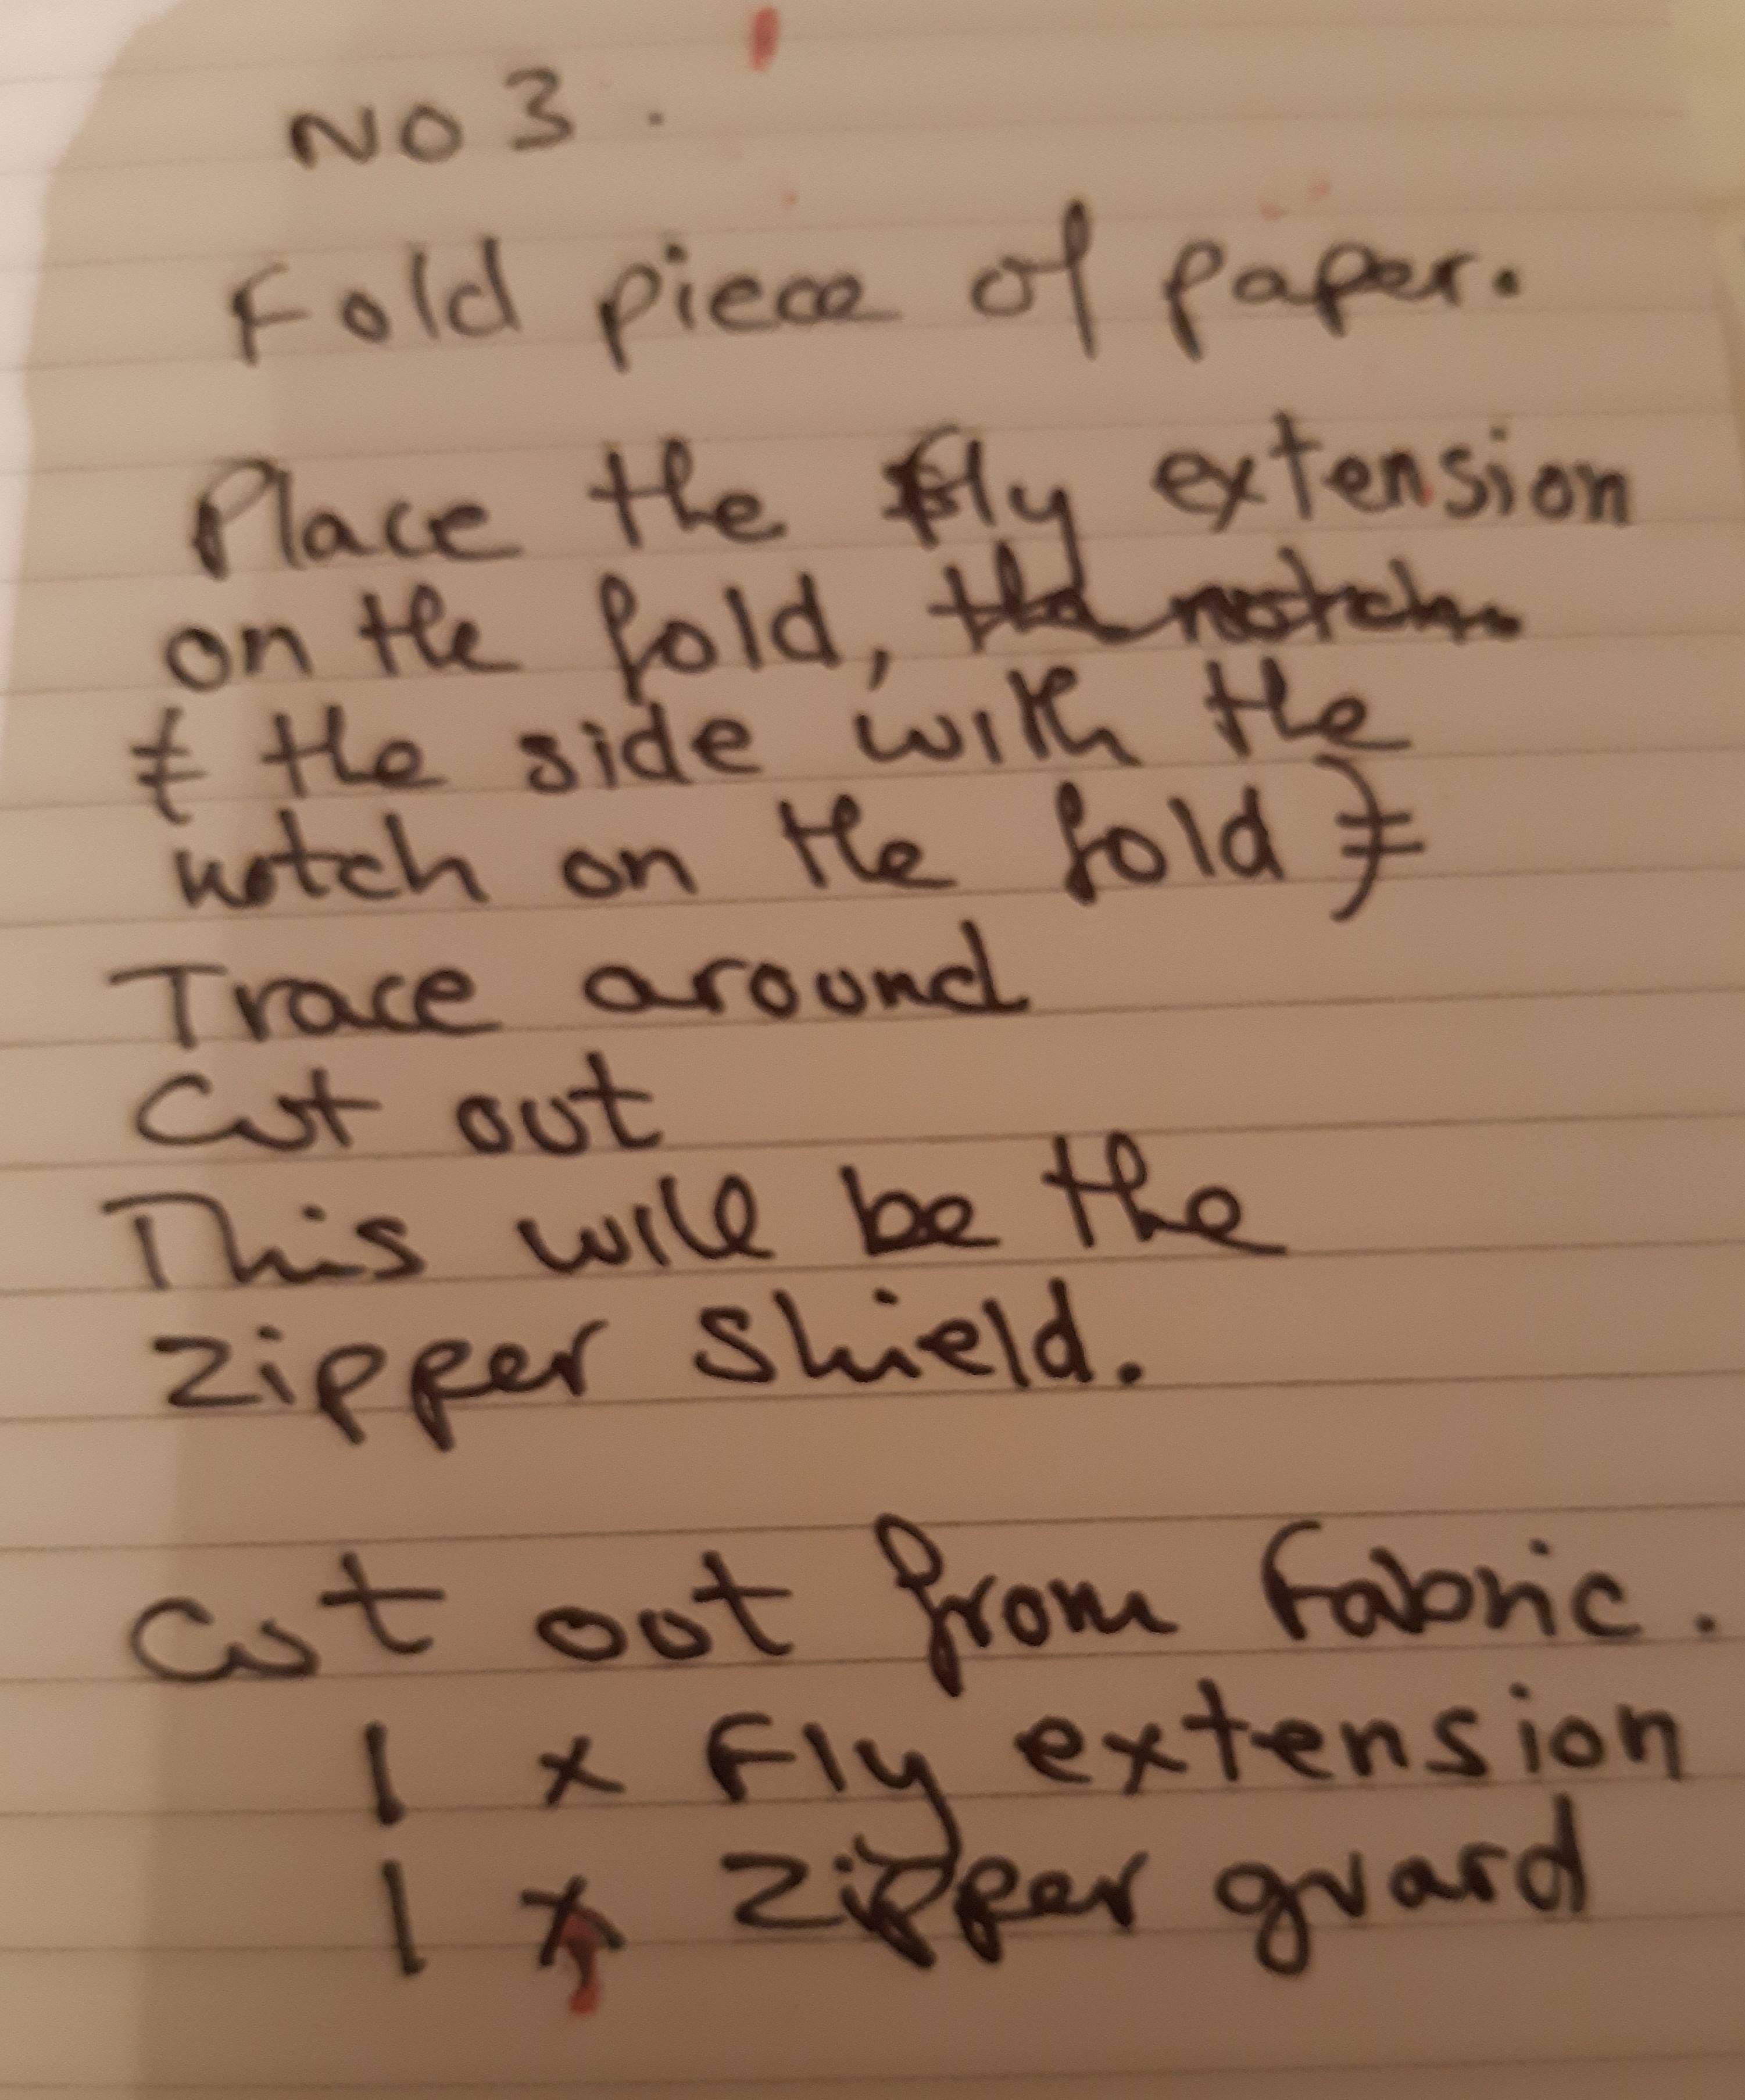 NO 3.
Fold piece of paper.
Place the fly extension
on the fold, the notch
the side with the
notch on the fold
Trace around
Cut out
This will be the
Zipper shield.
Cut out from fabric.
1 x Fly extension
1 x Zipper guard